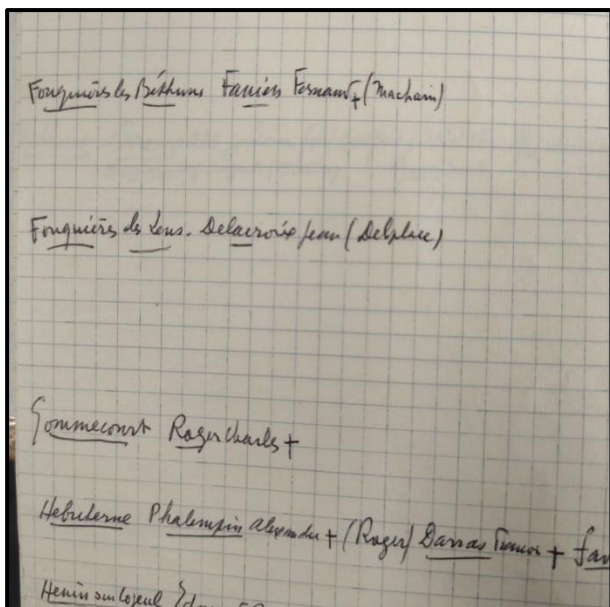 Fouquières les Béthune Fanien Fernand + (Machain)
Fouquières les Lens. Delacroix Jean (Delplace)
Gommecourt Roger Charles +
Hebuterne Phalempin Alexandre + (Roger) Darras Francois +
Henin sur Cojeul